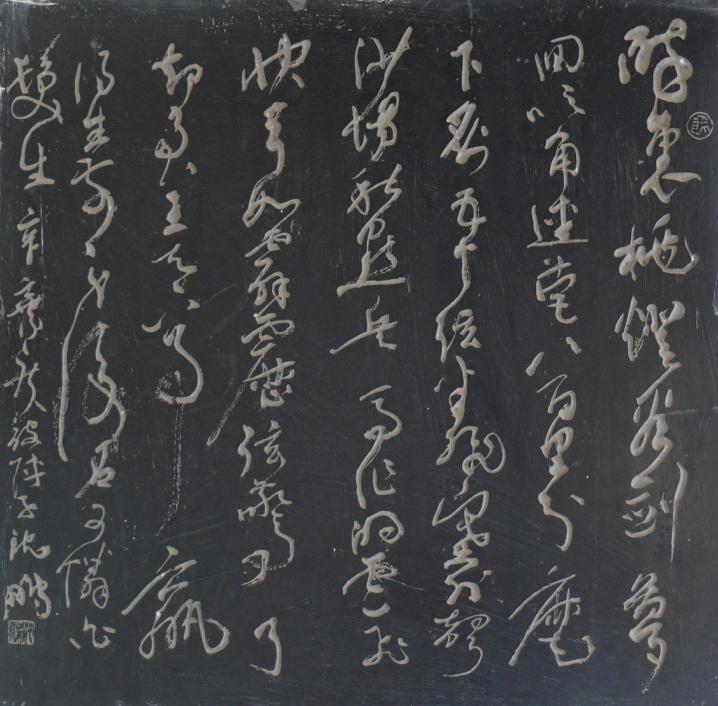 醉裏挑燈看劍夢
回吹角連營八百里分麾
下炙五十絃翻塞外聲
沙場秋點兵馬作的盧飛
快弓如霹靂弦驚了
却君王天下事贏
得生前身後名可憐白
髮生 辛棄疾破陣子沈鵬